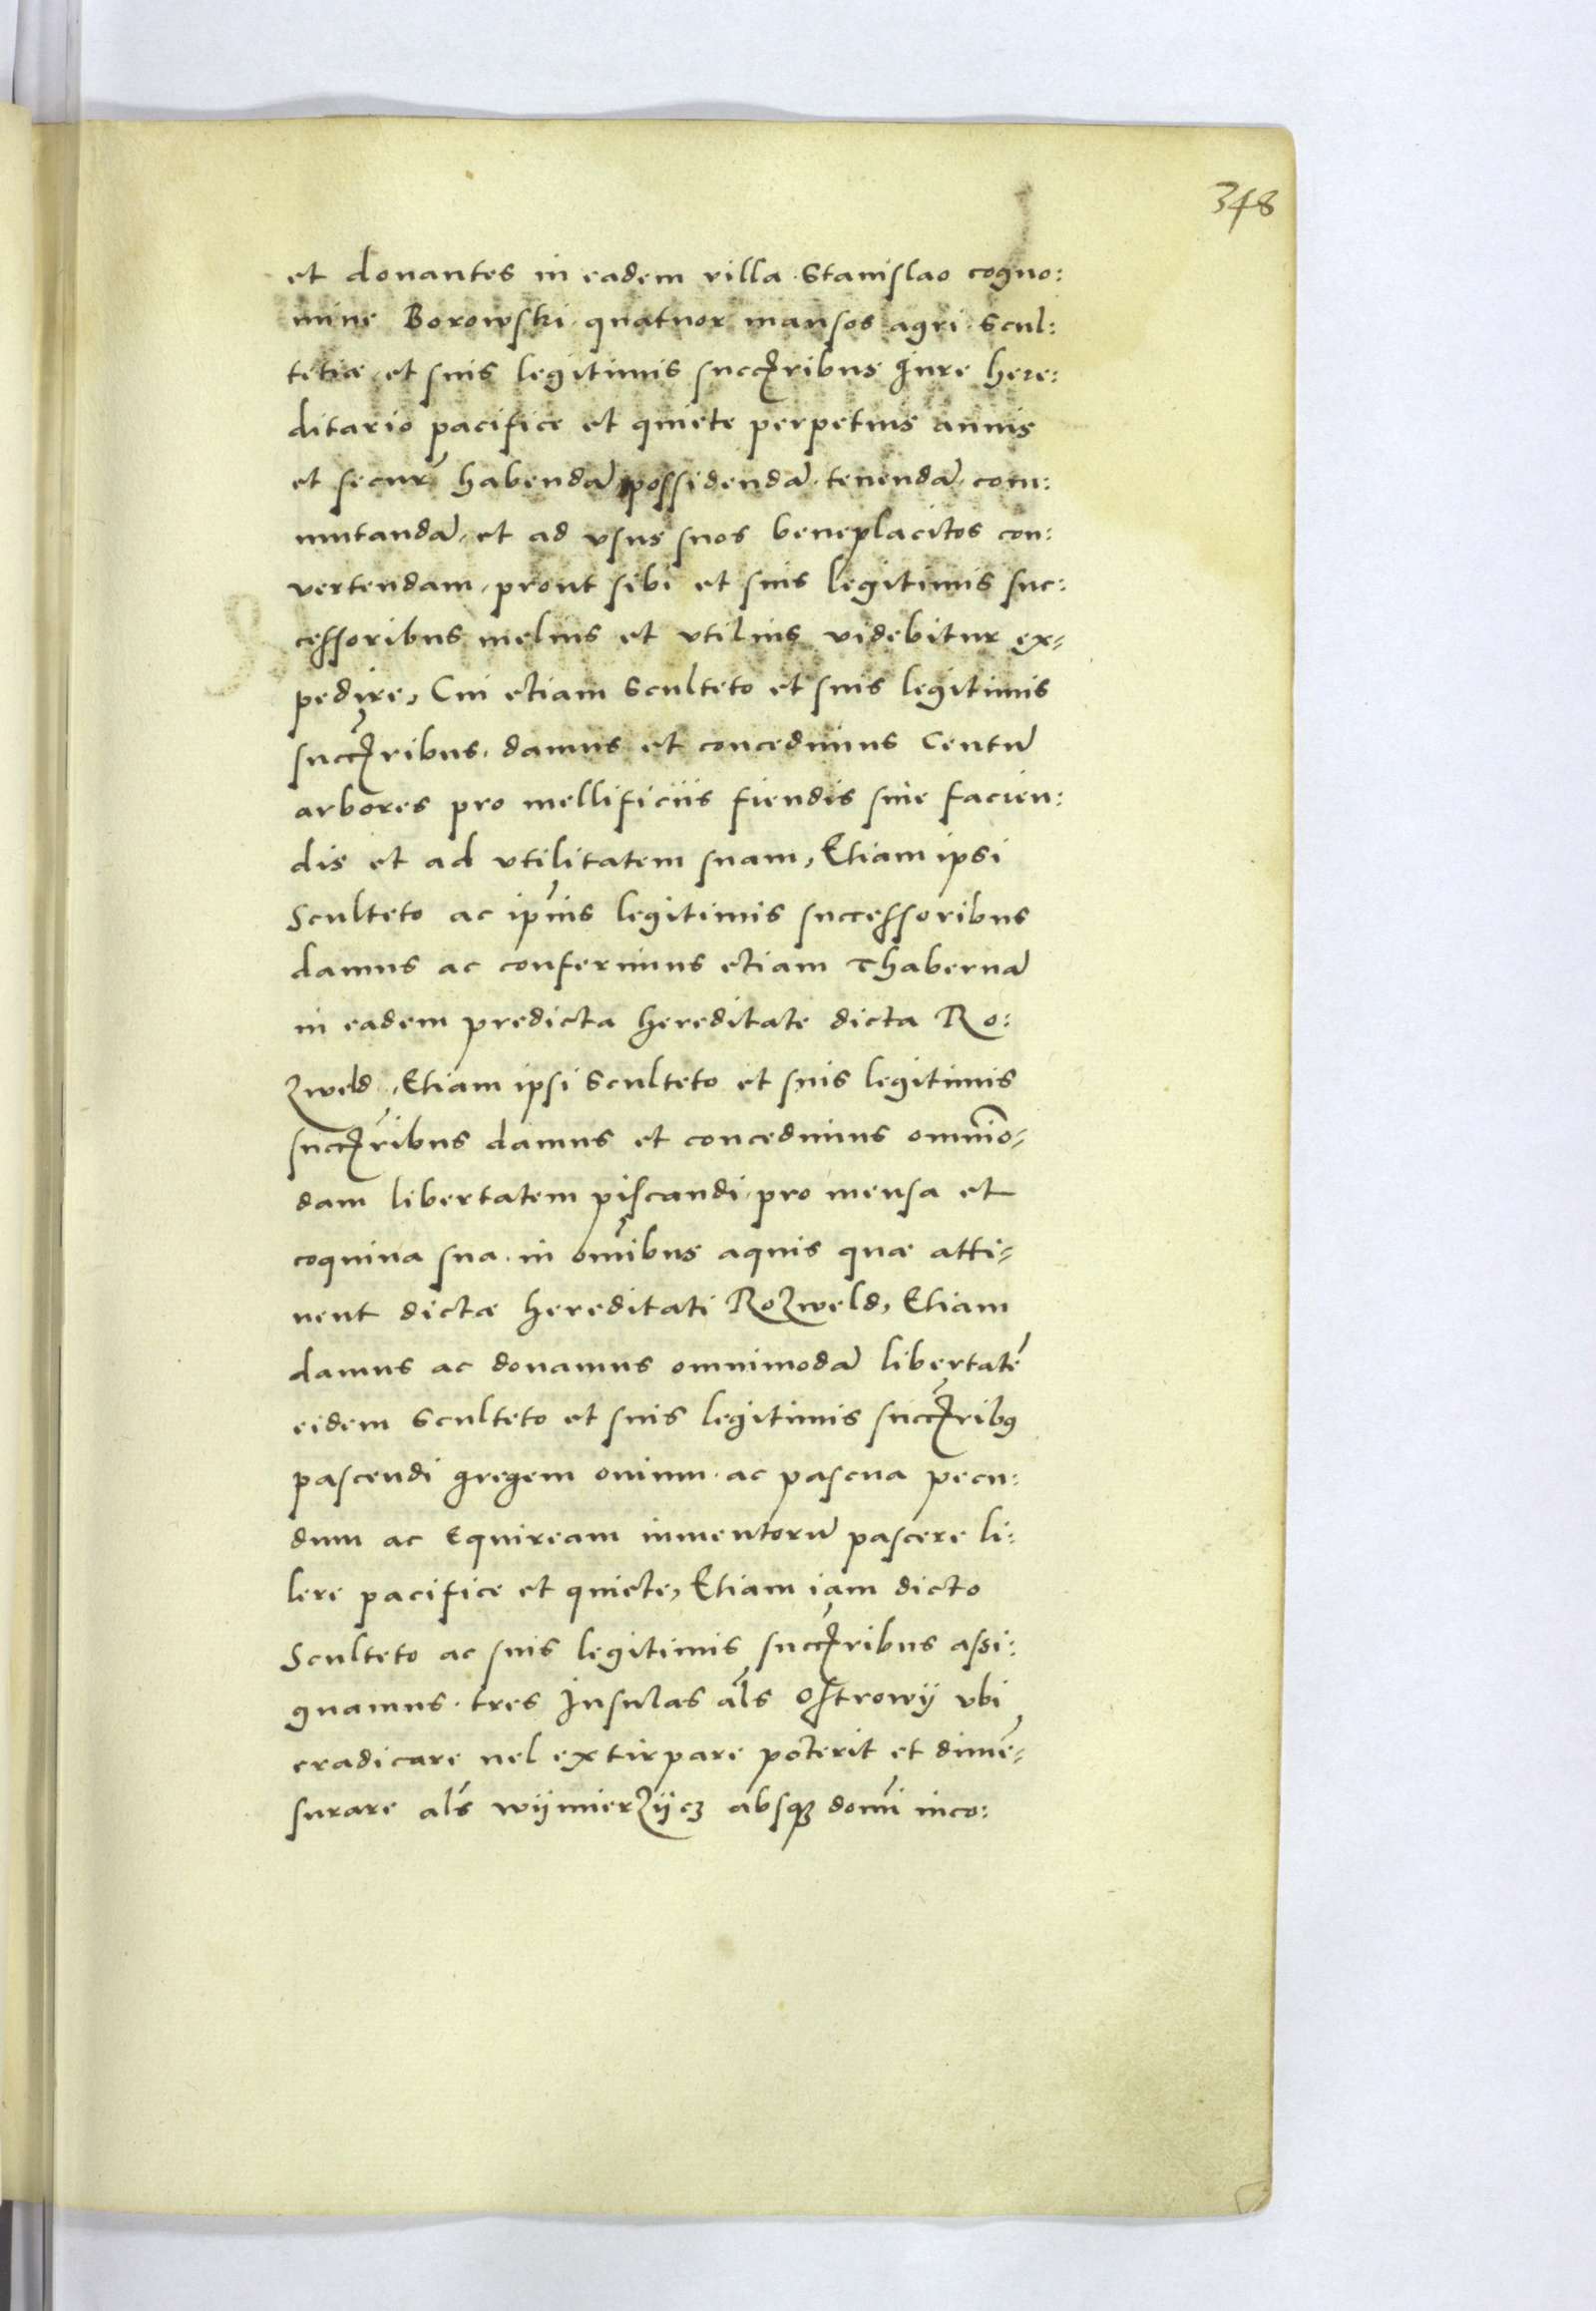 348
et donantes in eadem villa. Stanislao cogno:
mine Borowski. quatuor mansos agri. Scul:
tetiæ, et suis legitimis succ̃ribus Jure here:
ditario pacifice et quiete perpetuis annis
et securẽ habendã possidendã. tenendã. com:
mutandã, et ad vsus suos beneplacitos con:
vertendam, prout sibi et suis legitimis suc:
cessoribus melius et vtilius videbitur ex-
pedire, Cui etiam Sculteto et suis legitimis
succ̃ribus. damus et concedimus Centũ
arbores pro mellificiis fiendis siue facien:
dis et ad vtilitatem suam, Etiam ipsi
Sculteto ac ip̃iius legitimis successoribus
damus ac conferimus etiam Thabernã
in eadem predicta hereditate dicta Ro:
zweld, Etiam ipsi Sculteto et suis legitimis
succ̃ribus damus et concedimus omnĩo-
dam libertatem piscandi, pro mensa et
coquina sua. in om̃ibus aquis quæ atti-
nent dictæ hereditati Rozweld, Etiam
damus ac donamus omnimodã libertatẽ
eidem Sculteto et suis legitimis succ̃ribꝰ
pascendi gregem ouium. ac pascua pecu:
dum ac Equiream iumentorũ pascere li:
bere pacifice et quiete, Etiam iam dicto
Sculteto ac suis legitimis succ̃ribus assi:
gnamus. tres Insulas al̃s Ostrowÿ vbi
eradicare uel extirpare poterit et dimẽ-
surare al̃s wÿmierzÿcz absqꝫ dom̃i inco: